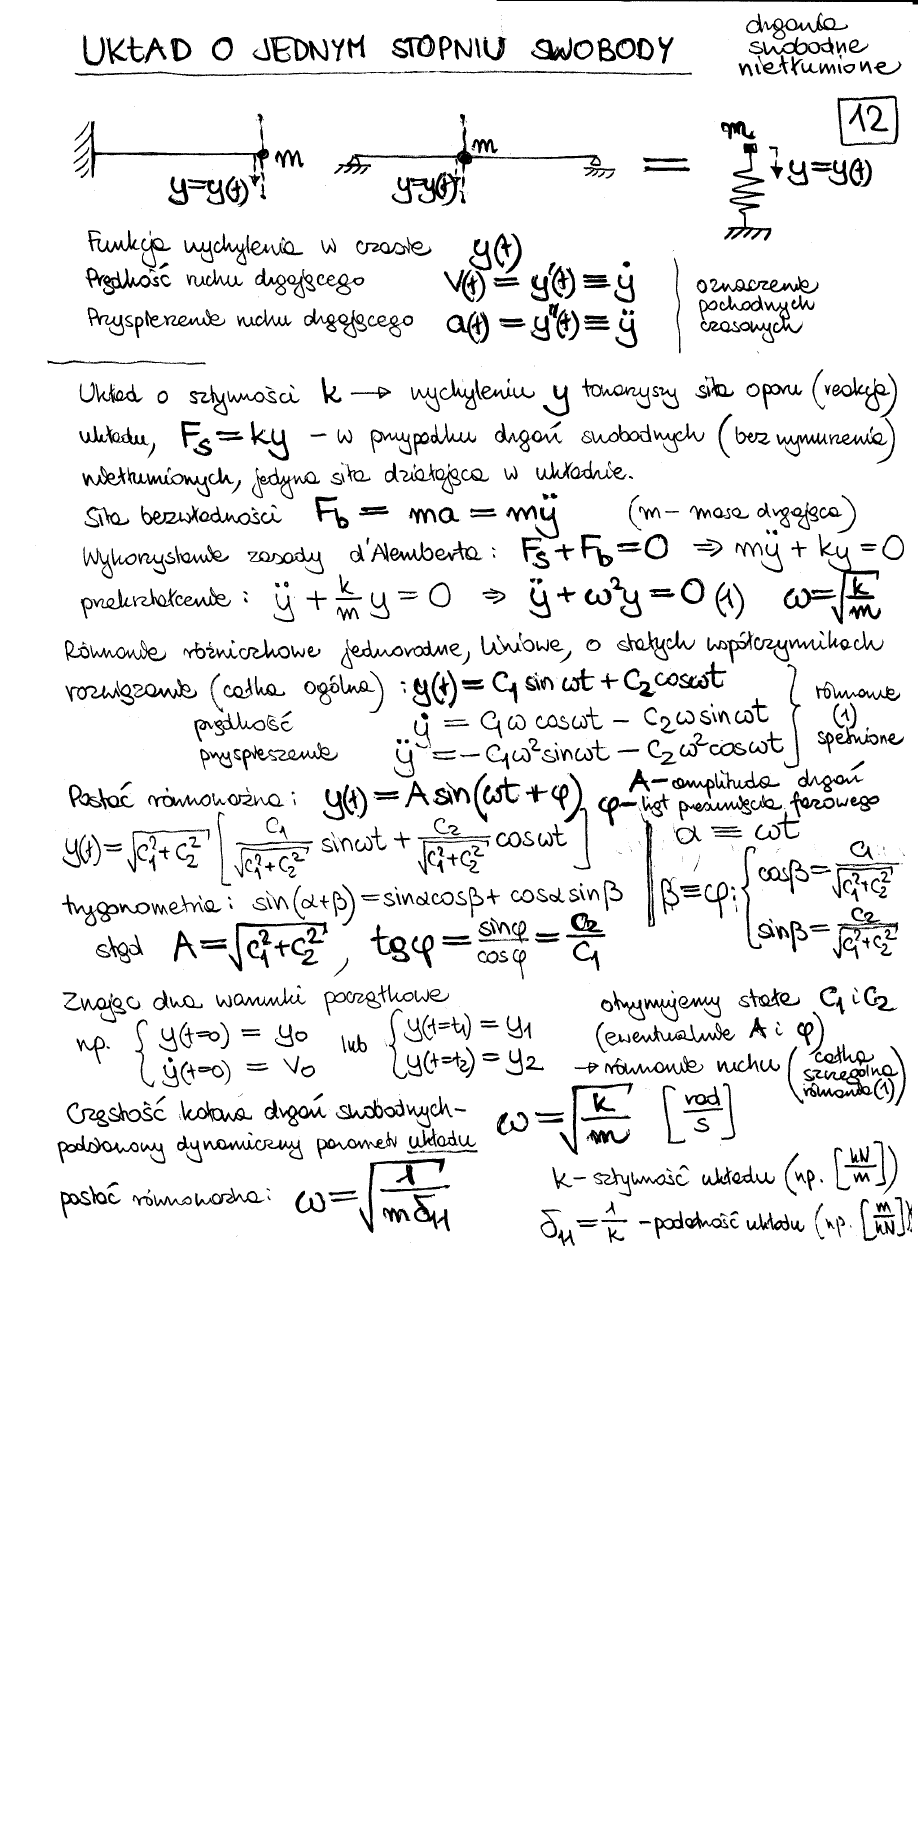 UKŁAD O JEDNYM STOPNIU SWOBODY
drgania
swobodne
nietłumione
12
m
y=y(t)
m
y=y(t)
=
m
y=y(t)
Funkcja wychylenia w czasie y(t)
Prędkość ruchu drgającego V(t) = y'(t) ≡ ẏ
Przyspieszenie ruchu drgającego a(t) = y''(t) ≡ ÿ
oznaczenie
pochodnych
czasowych
Układ o sztywności k → wychyleniu y towarzyszy siła oporu (reakcja)
układu, F_s = ky – w przypadku drgań swobodnych (bez wymuszenia)
nietłumionych, jedyna siła działająca w układzie.
Siła bezwładności F_b = ma = mÿ (m – masa drgająca)
Wykorzystanie zasady d'Alemberta: F_s + F_b = 0 ⇒ mÿ + ky = 0
przekształcenie: ÿ + k/m y = 0 ⇒ ÿ + ω²y = 0 (1) ω = √(k/m)
Równanie różniczkowe jednorodne, liniowe, o stałych współczynnikach
rozwiązanie (całka ogólna): y(t) = C₁ sin ωt + C₂ cos ωt
prędkość ẏ = C₁ω cos ωt – C₂ω sin ωt
przyspieszenie ÿ = –C₁ω² sin ωt – C₂ω² cos ωt
równanie
(1)
spełnione
Postać równoważna: y(t) = A sin(ωt + φ)
A – amplituda drgań
φ – kąt przesunięcia fazowego
y(t) = √(C₁² + C₂²) [ C₁/√(C₁² + C₂²) sin ωt + C₂/√(C₁² + C₂²) cos ωt ]
α ≡ ωt
β ≡ φ: { cosβ = C₁/√(C₁² + C₂²)
sinβ = C₂/√(C₁² + C₂²)
trygonometria: sin(α+β) = sinα cosβ + cosα sinβ
stąd A = √(C₁² + C₂²), tgφ = sinφ/cosφ = C₂/C₁
Znając dwa warunki początkowe
np. { y(t=0) = y₀ lub { y(t=t₁) = y₁
ẏ(t=0) = V₀ y(t=t₂) = y₂
otrzymujemy stałe C₁ i C₂
(ewentualnie A i φ)
→ równanie ruchu (całka
szczególna
równania (1))
Częstość kołowa drgań swobodnych –
podstawowy dynamiczny parametr układu
ω = √(k/m) [rad/s]
k – sztywność układu (np. [kN/m])
postać równoważna: ω = √(1/(mδ₁₁))
δ₁₁ = 1/k – podatność układu (np. [m/kN])